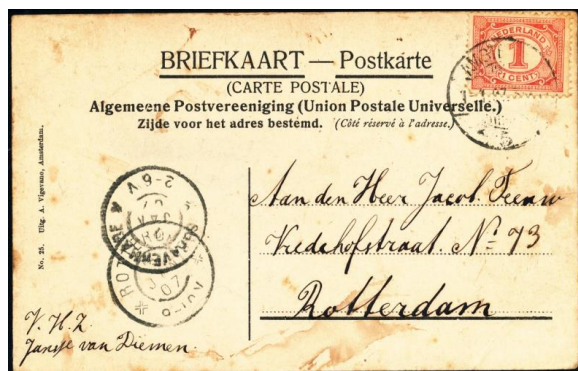 BRIEFKAART — Postkarte
(CARTE POSTALE)
Algemeene Postvereeniging (Union Postale Universelle.)
Zijde voor het adres bestemd. (Côté réservé à l'adresse.)
NEDERLAND
1
CENT
No. 25. Uitg. A. Vigevano, Amsterdam.
'S GRAVENHAGE
2-6 V
07
Aan den Heer Jacob. Leeuw
Vredehofstraat. No 73
Rotterdam
V. H. Z
Jansje van Diemen.